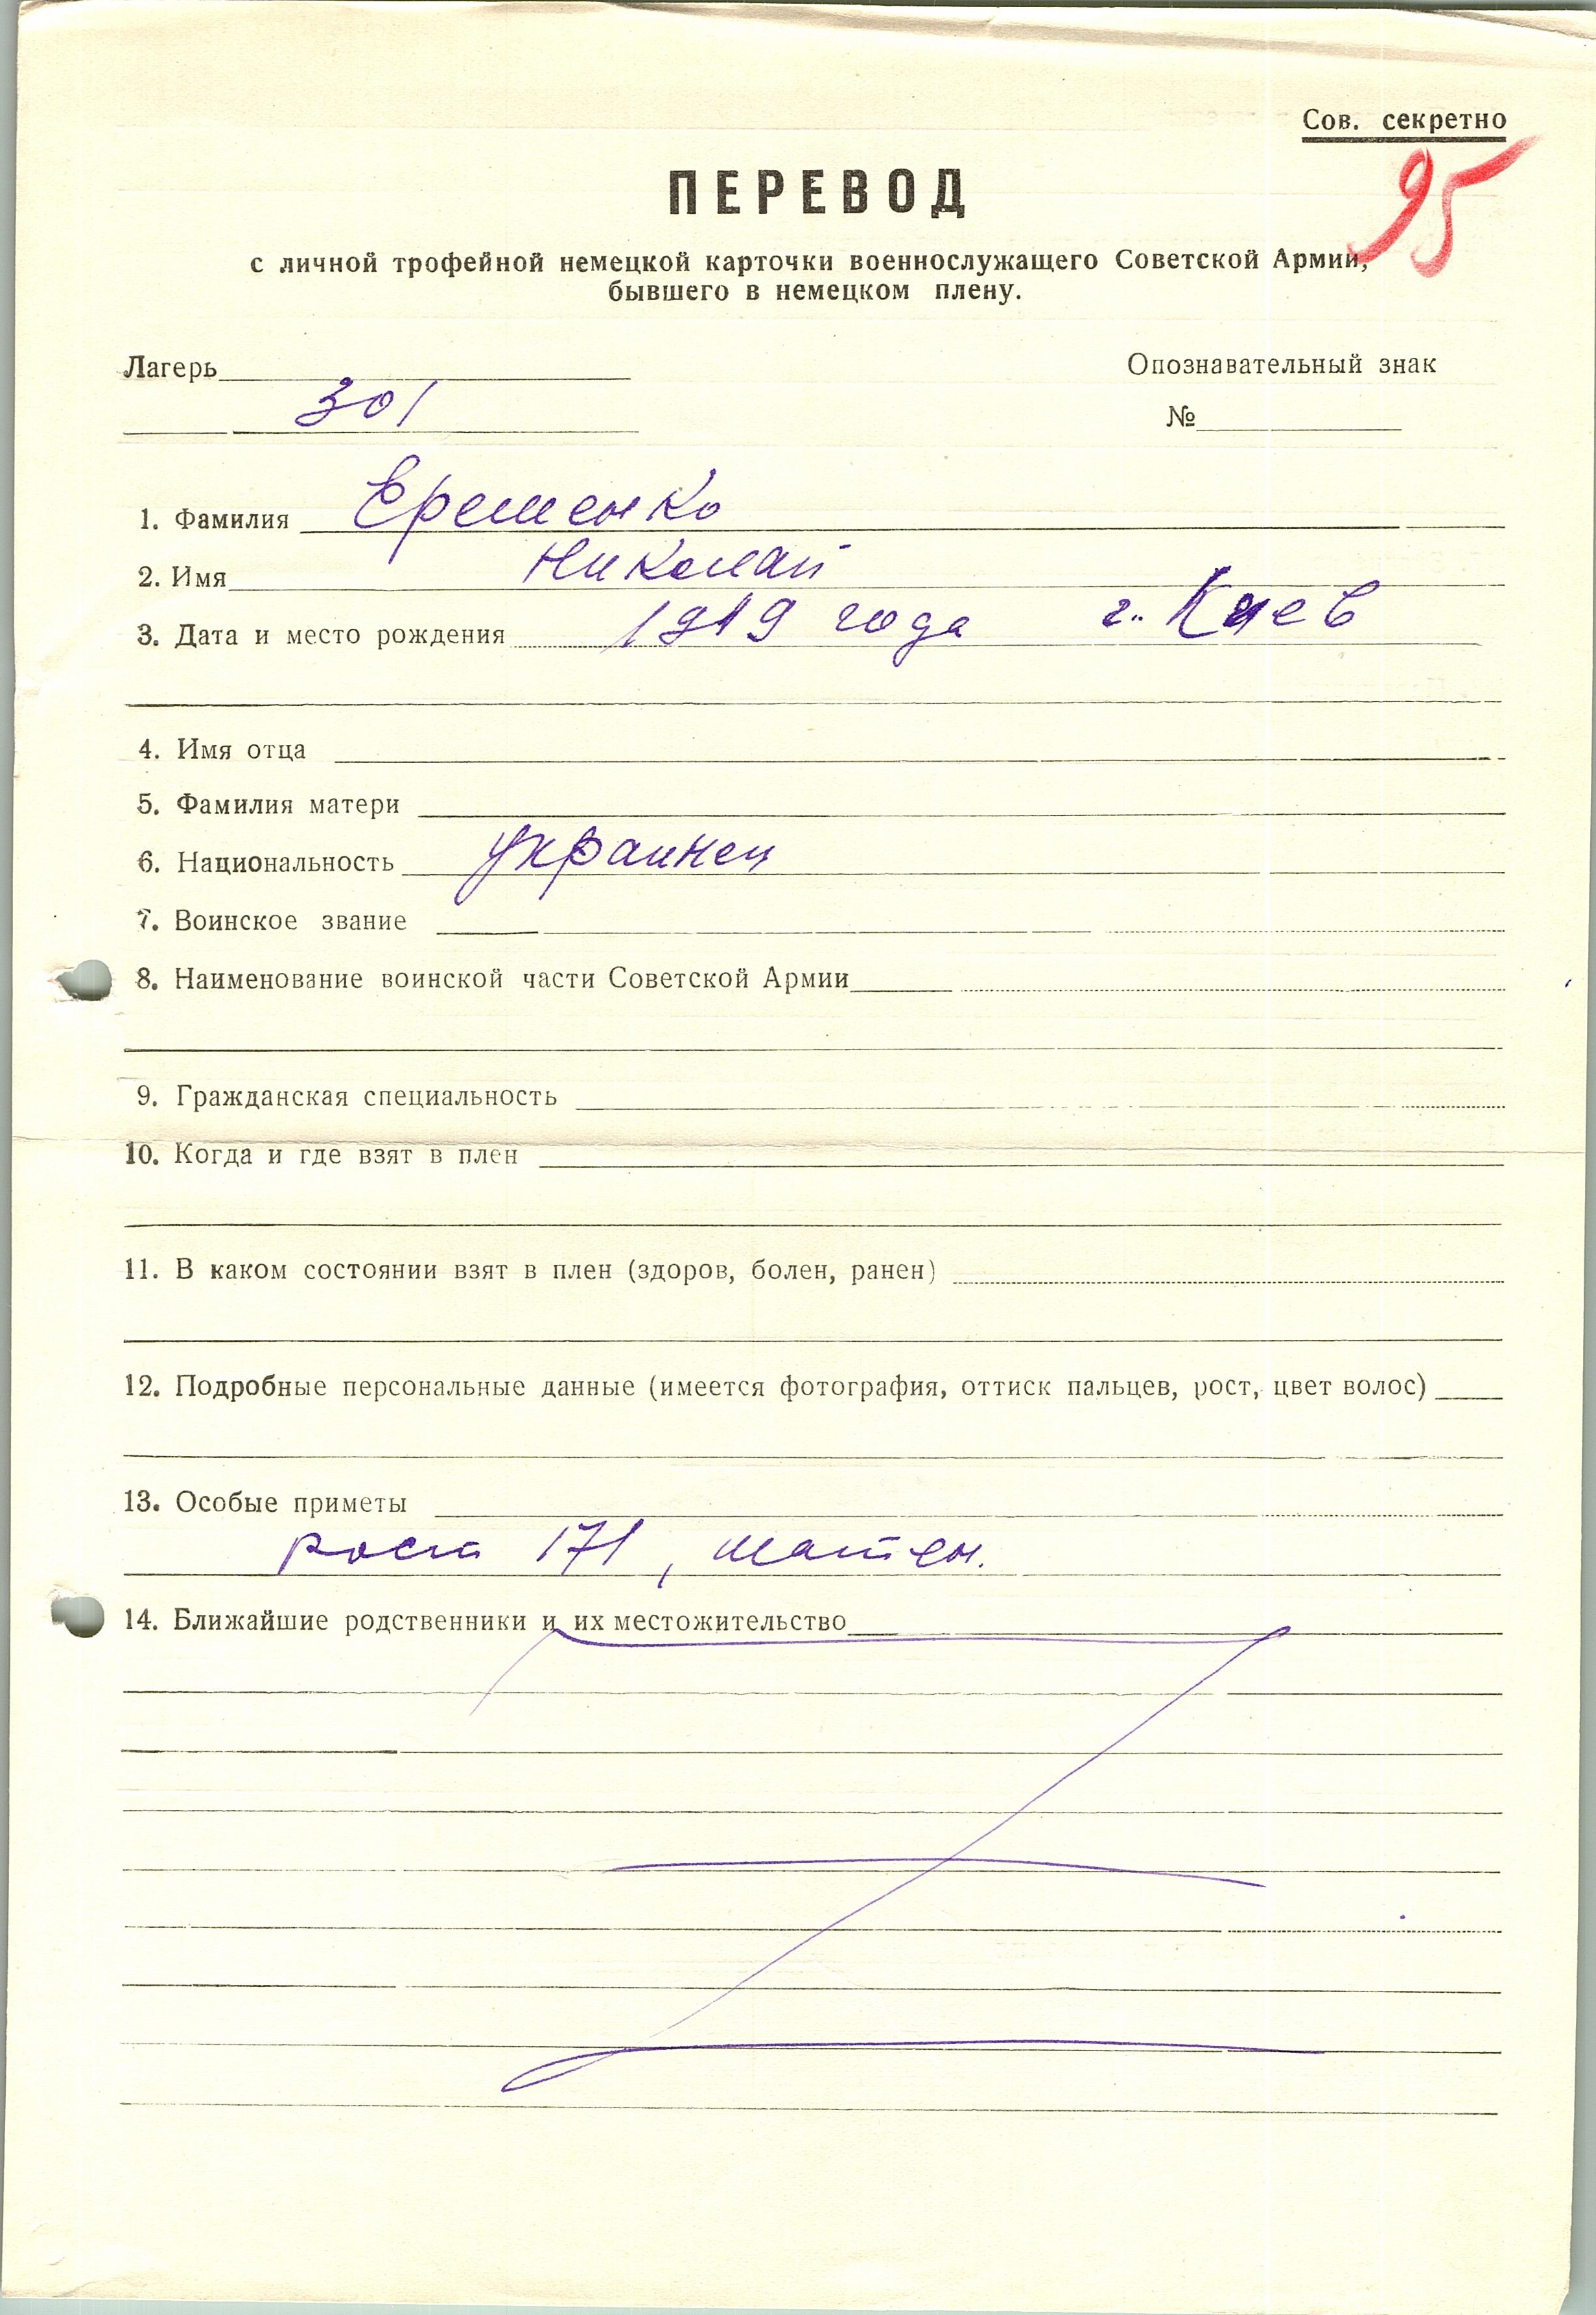 Сов. секретно
95
ПЕРЕВОД
с личной трофейной немецкой карточки военнослужащего Советской Армии,
бывшего в немецком плену.
Лагерь
Опознавательный знак
301
№
1. Фамилия Еременко
2. Имя Николай
3. Дата и место рождения 1919 года г. Киев
4. Имя отца
5. Фамилия матери
6. Национальность украинец
7. Воинское звание
8. Наименование воинской части Советской Армии
9. Гражданская специальность
10. Когда и где взят в плен
11. В каком состоянии взят в плен (здоров, болен, ранен)
12. Подробные персональные данные (имеется фотография, оттиск пальцев, рост, цвет волос)
13. Особые приметы
роста 171, шатен.
14. Ближайшие родственники и их местожительство